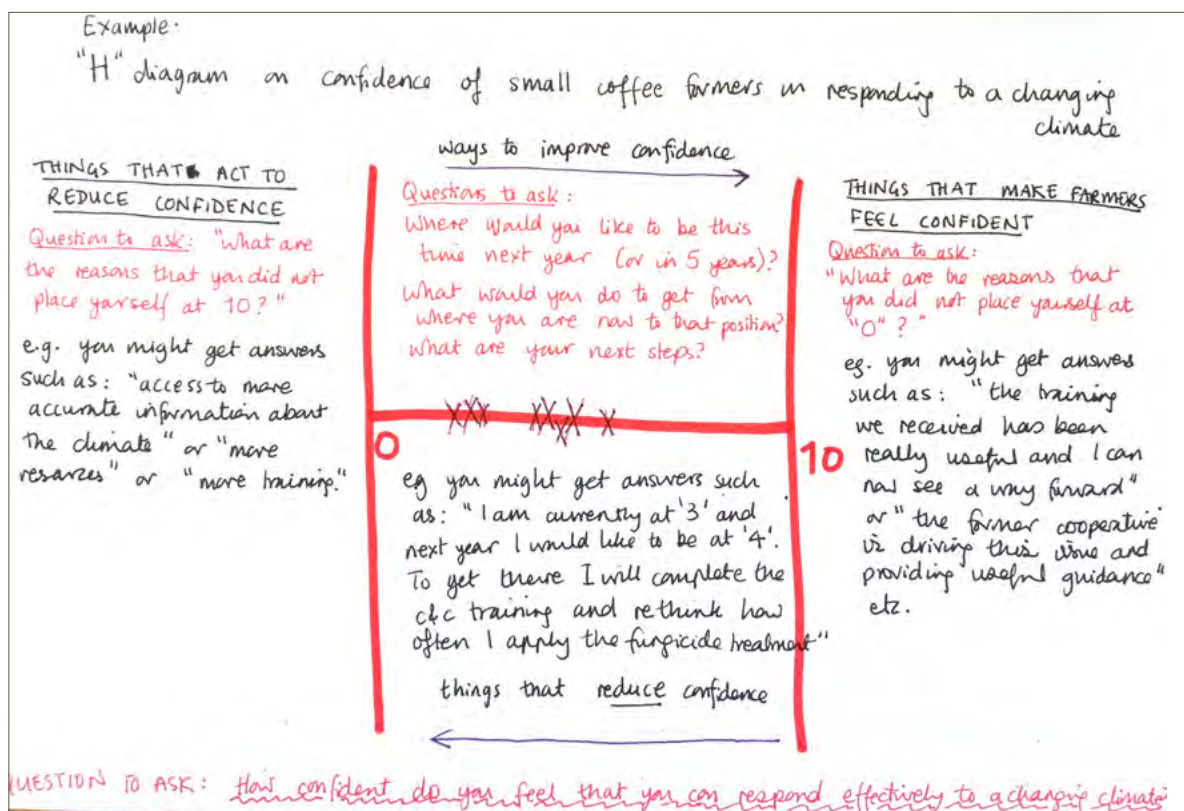 Example:
"H" diagram on confidence of small coffee farmers in responding to a changing
climate
THINGS THAT ACT TO
REDUCE CONFIDENCE
Question to ask: "What are
the reasons that you did not
place yourself at 10?"
e.g. you might get answers
such as: "access to more
accurate information about
the climate" or "more
resources" or "more training."
ways to improve confidence
Questions to ask:
Where would you like to be this
time next year (or in 5 years)?
What would you do to get from
where you are now to that position?
What are your next steps?
0
10
eg you might get answers such
as: "I am currently at '3' and
next year I would like to be at '4'.
To get there I will complete the
c&c training and rethink how
often I apply the fungicide treatment"
things that reduce confidence
THINGS THAT MAKE FARMERS
FEEL CONFIDENT
Question to ask:
"What are the reasons that
you did not place yourself at
"0"?"
eg. you might get answers
such as: "the training
we received has been
really useful and I can
now see a way forward"
or "the farmer cooperative
is driving this issue and
providing useful guidance"
etc.
QUESTION TO ASK: How confident do you feel that you can respond effectively to a changing climate